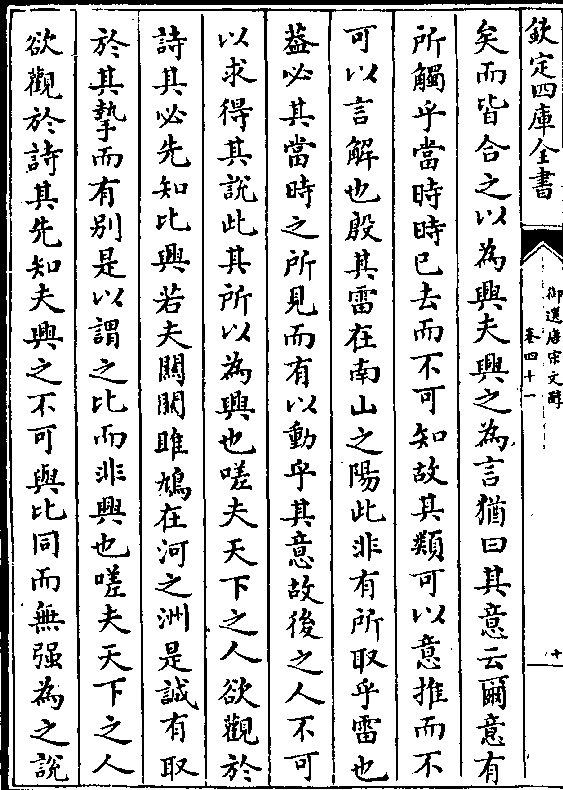 欽定四庫全書
御選唐宋文醇
卷四十一
十
矣而皆合之以為興夫興之為言猶曰其意云爾意有
所觸乎當時時已去而不可知故其類可以意推而不
可以言解也殷其雷在南山之陽此非有所取乎雷也
葢必其當時之所見而有以動乎其意故後之人不可
以求得其說此其所以為興也嗟夫天下之人欲觀於
詩其必先知比興若夫關關雎鳩在河之洲是誠有取
於其摯而有别是以謂之比而非興也嗟夫天下之人
欲觀於詩其先知夫興之不可與比同而無强為之說